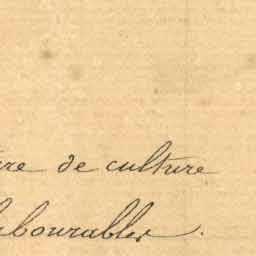 re de culture
labourables.